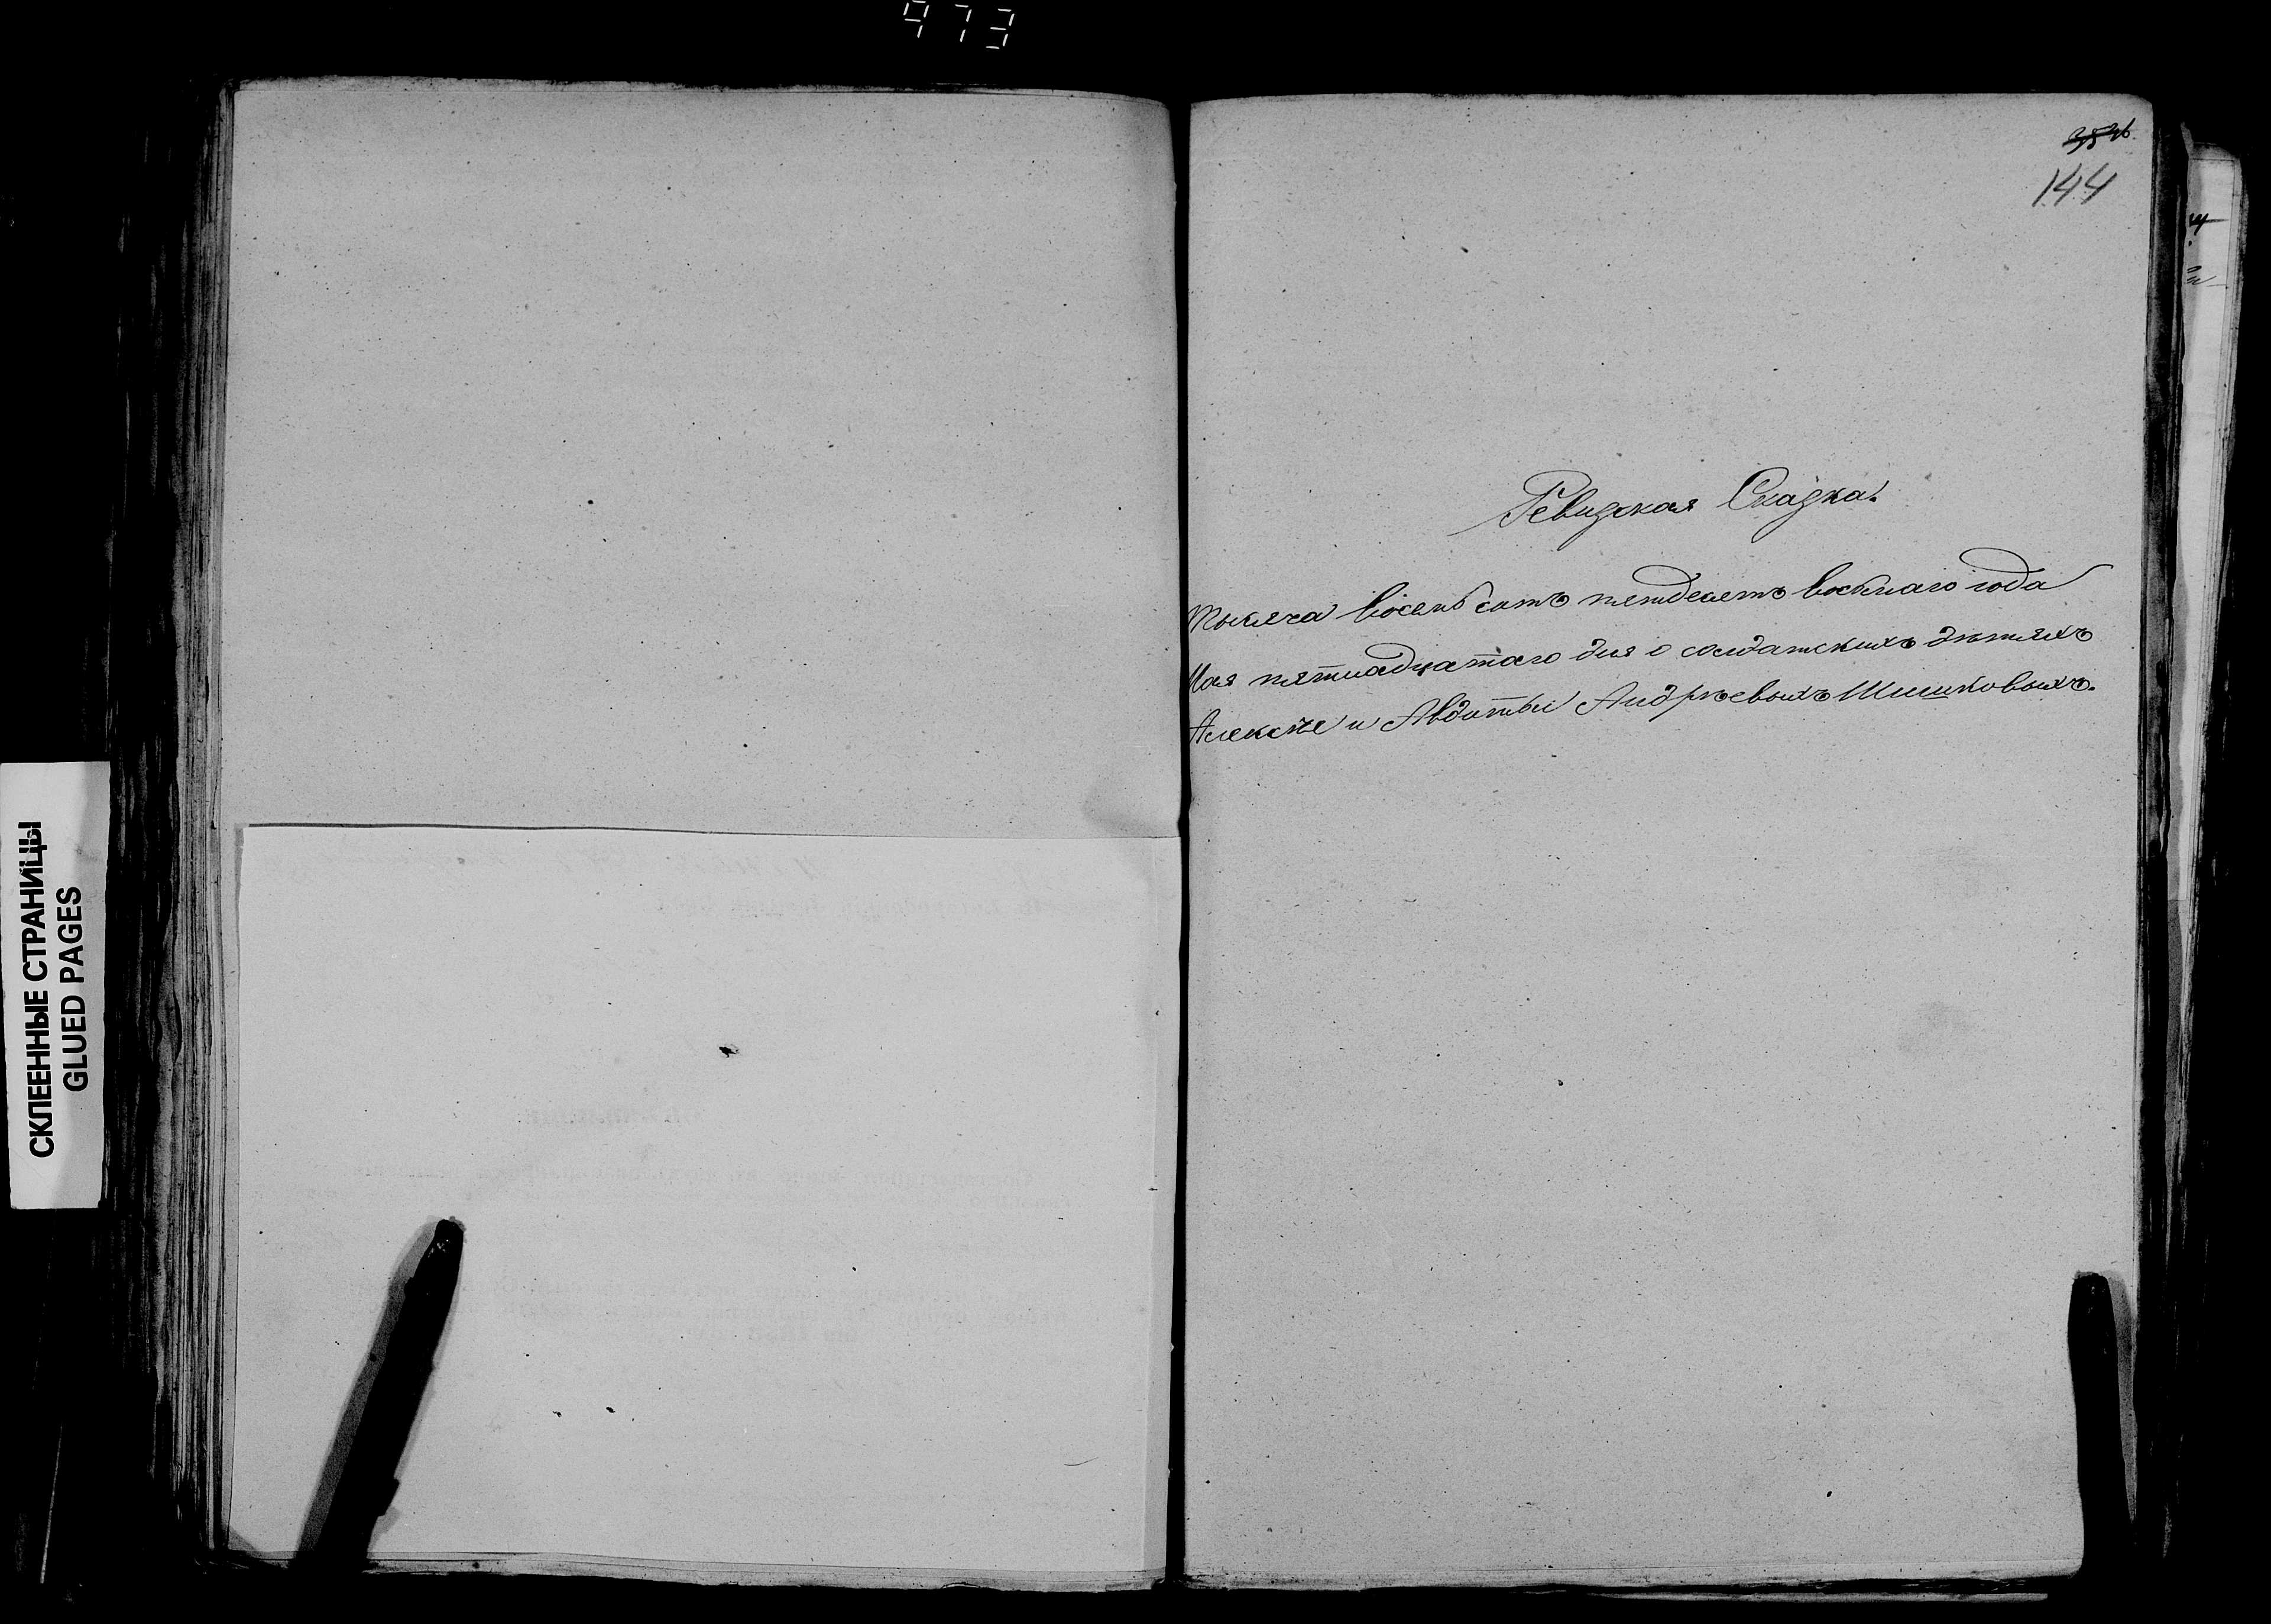 973
144
Ревизская Сказка.
Тысяча восемьсотъ пятдесятъ восьмаго года
Мая пятнадцатаго дня о солдатскихъ дѣтяхъ
Алексѣе и Авдотьи Андрѣевыхъ Шишковыхъ.
СКЛЕЕННЫЕ СТРАНИЦЫ
GLUED PAGES